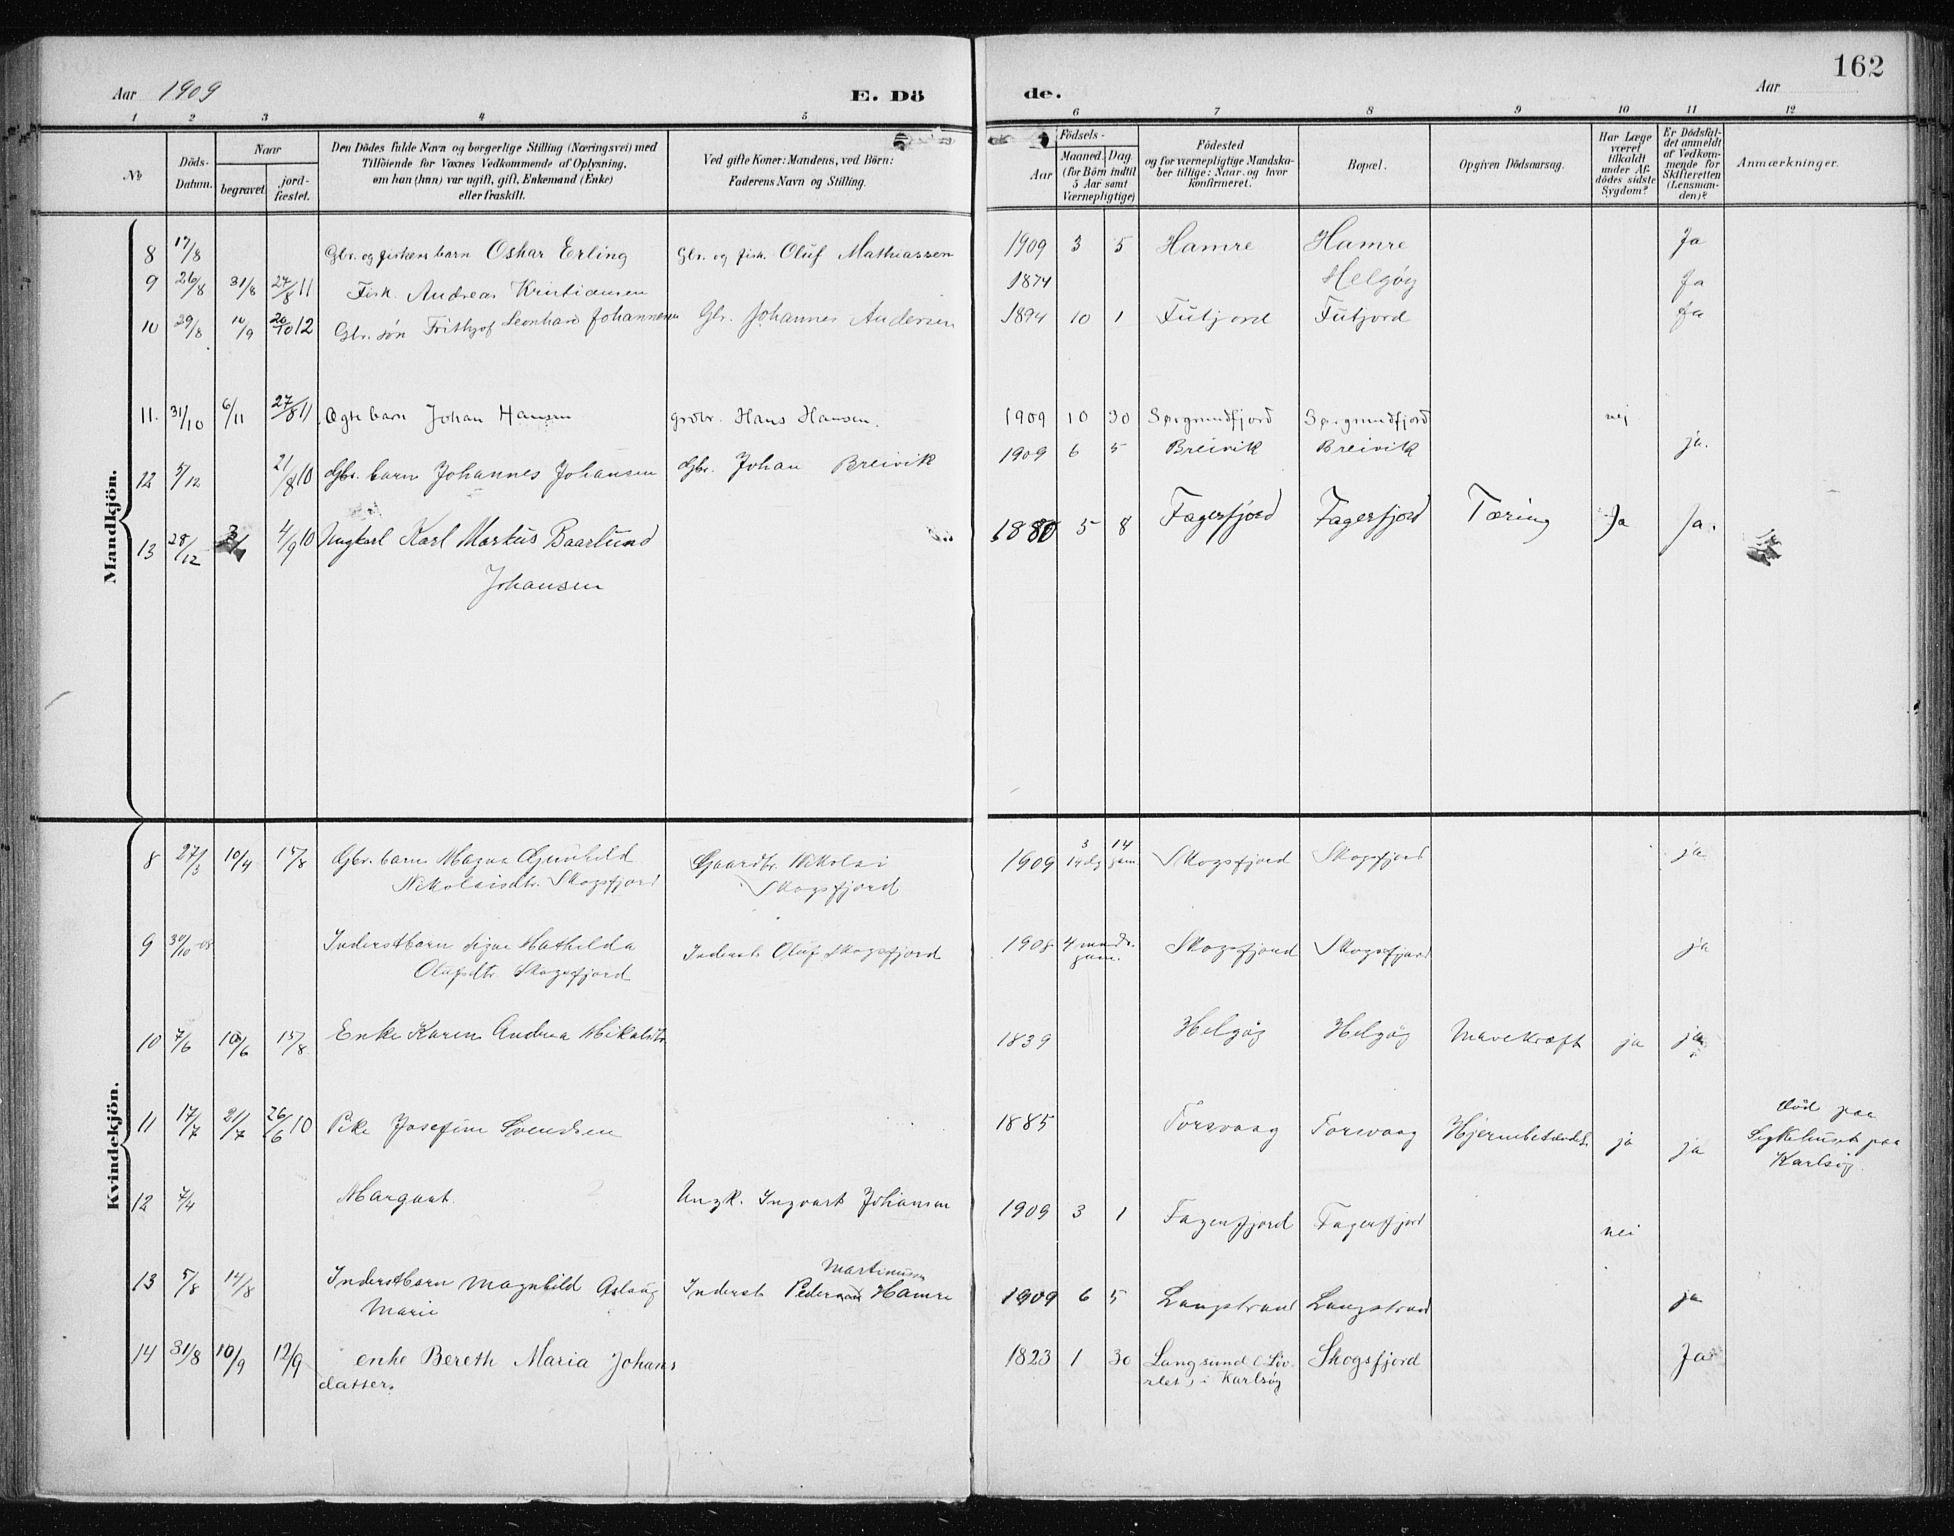 162
Aar 1909 E. Dö de. Aar
1 2 3 4 5 6 7 8 9 10 11 12
№ Döds-Datum. Naar begravet. jord-fæstet. Den Dödes fulde Navn og borgerlige Stilling (Næringsvei) med Tilföiende for Voxnes Vedkommende af Oplysning, om han (hun) var ugift, gift, Enkemand (Enke) eller fraskilt. Ved gifte Koner: Mandens, ved Börn: Faderens Navn og Stilling. Födsels- Aar Maaned. Dag. (for Börn indtil 5 Aar samt Værnepligtige) Födested og for værnepligtige Mandskaber tillige: Naar og hvor konfirmeret. Bopæl. Opgiven Dödsaarsag. Har Læge været tilkaldt under Afdödes sidste Sygdom? Er Dödsfaldet anmeldt af Vedkommende for Skifteretten (Lensmanden)? Anmærkninger.
Mandkjön.
8 17/8 Gbr. og fiskers barn Oskar Erling Gbr. og fisk. Oluf Mathiassen 1909 3 5 Hamre Hamre Ja
9 26/8 31/8 27/8 11 Fisk. Andreas Kristiansen 1874 Helgøy Ja
10 29/8 10/9 20/10 12 Gbr. søn Frithjof Leonhard Johannesen Gbr. Johannes Andersen 1894 10 1 Futjord Futjord Ja
11. 31/10 6/11 27/8 11 Ægte barn Johan Hansen grdbr. Hans Hansen. 1909 10 30 nej
12 5/12 21/8 10 Gbr. barn Johannes Johansen Gbr. Johan Breivik 1909 6 5 Breivik Breivik ja.
13 28/12 4/9 10 Ungkarl Karl Markus Baarlund 1880 5 8 Fagerfjord Fagerfjord Tæring Ja Ja.
Johansen
Kvindekjön.
8 27/3 10/4 15/8 Gbr. barn Magna Gunhild Gaardbr. Nikolai 1909 3 14 14 dg. gam. Skogsfjord Skogsfjord ja
Nikolaisdtr. Skogsfjord Skogsfjord
9 30/10 08 Inderstbarn Signe Mathilda Inderst Oluf Skogsfjord 1908 4 mndr. gam. Skogsfjord Skogsfjord ja
Olufsdtr Skogsfjord
10 7/6 10/6 15/8 Enke Karen Andrea Mikalsdtr 1839 Helgøy Helgøy Mavekræft ja ja
11 17/7 21/7 26/6 10 Pike Josefine Svendsen 1885 Torsvaag Torsvaag Hjernebetændelse ja ja død paa
Sygehuset paa
Karlsøy.
12 7/4 Margaret. Ungk. Ingvart Johansen 1909 3 1 Fagerfjord Fagerfjord nei
13 5/8 14/8 Inderstbarn Magnhild Aslaug Inderst Pedersen Martinussen Hamre 1909 6 5 Langstrand Langstrand ja
Marie
14 31/8 10/9 12/9 enke Bereth Maria Johans 1823 1 30 Langsund i Karlsøy Skogsfjord Ja
datter.